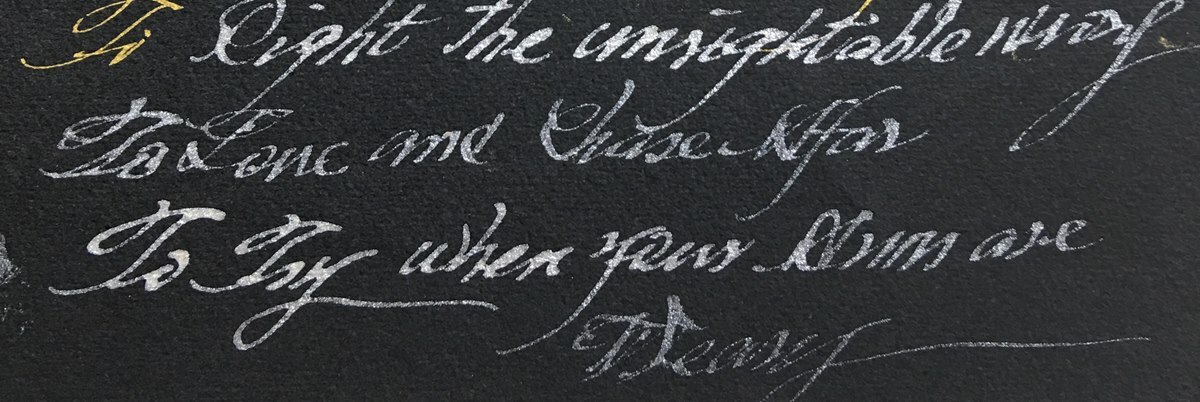 To Right the unrightable wrong
To Love and Chase Afar
To Try when your Arms are
Weary